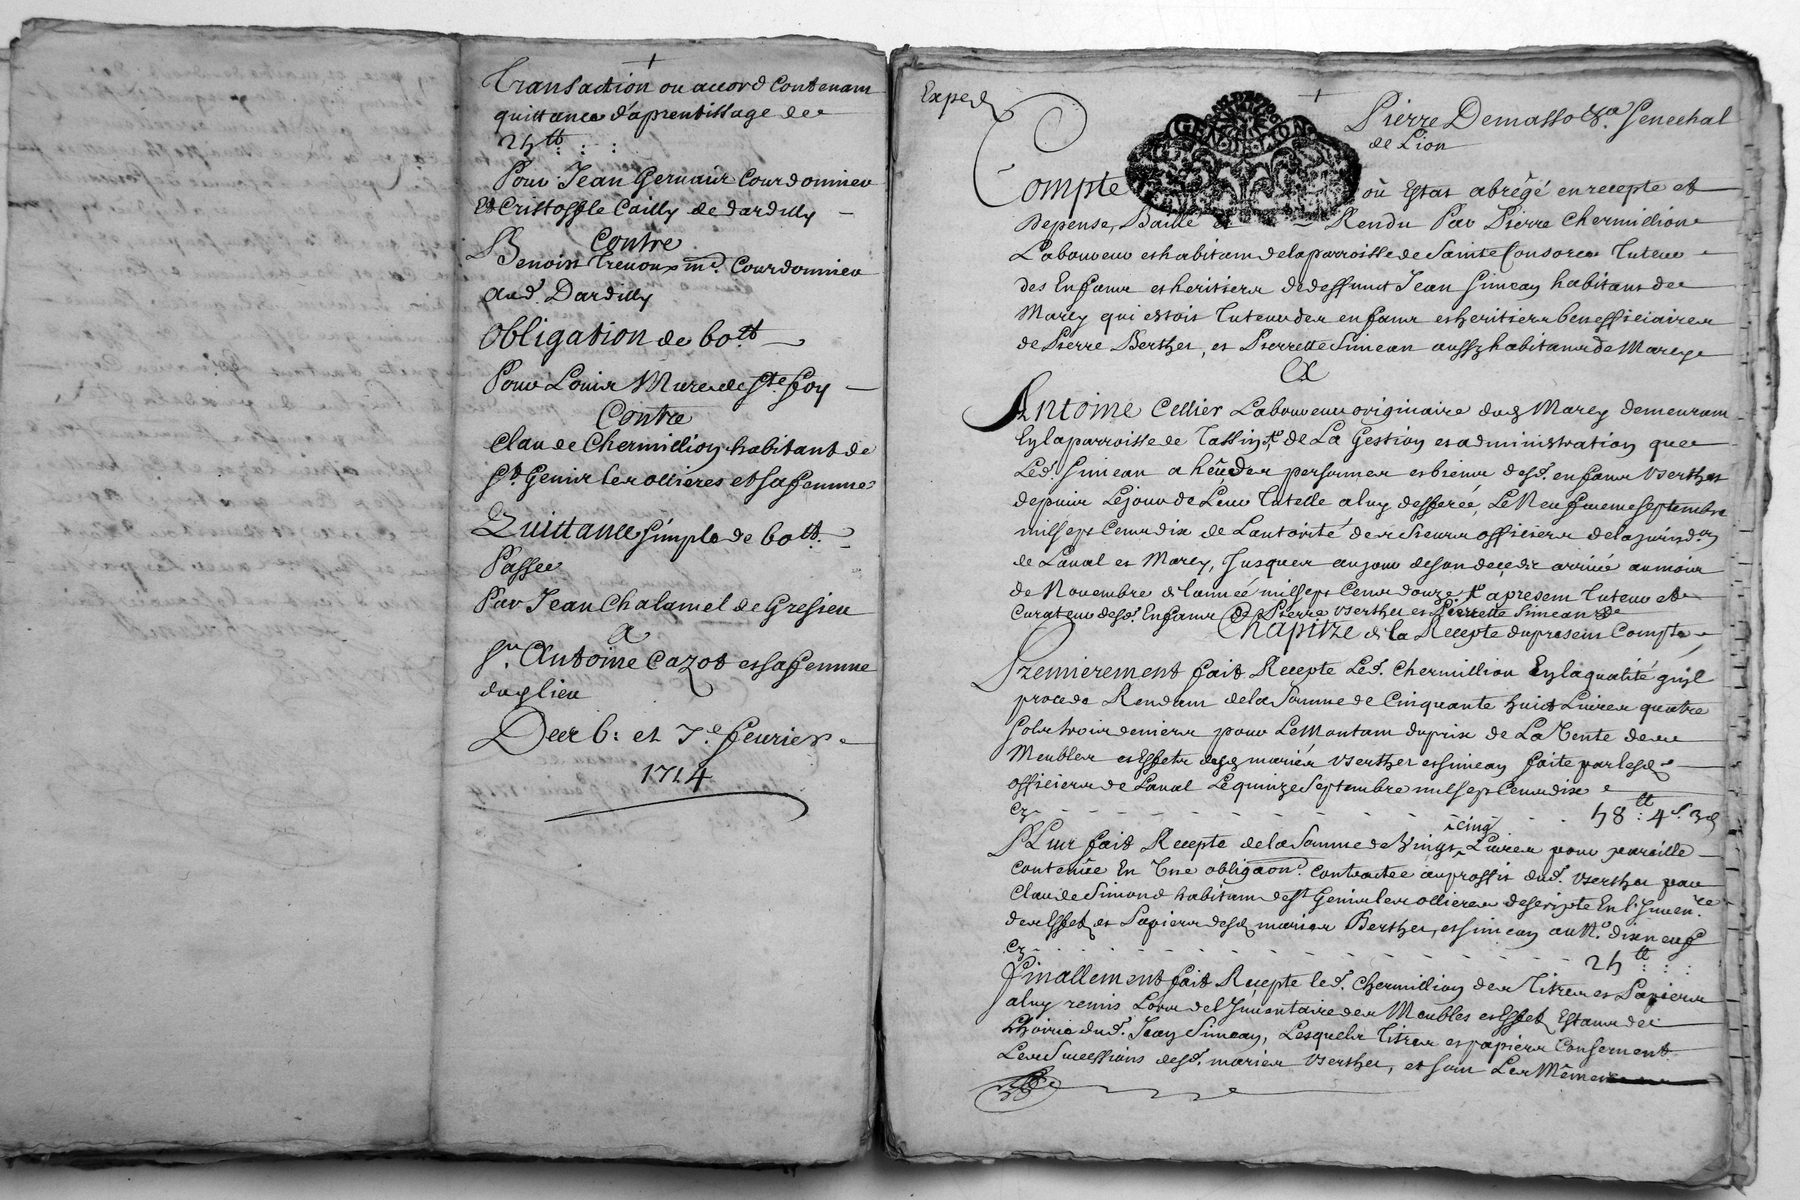 Transaction ou accord Contenant
quittance d'aprentissage de
25tt : :
Pour Jean Gervais Courdonnier
Et Cristofle Cailly de dardilly
Contre
Benoist Trenoux md. Courdonnier
dud. Dardilly
Obligation de 60tt
Pour Louis Mure de Ste foy
Contre
Claude Chermillion habitant de
St. Genis les ollieres et sa femme
Quittance simple de 60tt
Passee
Par Jean Chalamel de Gresieu
a
Sr. Antoine Cazot et sa femme
dud lieu
Des 6: et 7e feurier
1714
Exped
Pierre Demasso &a Senechal
de Lion
GEN LION
Compte où Estat abrégé en recepte et
Depense, Baillé et Rendu Par Pierre Chermillion
Laboureur et habitant de la parroisse de Sainte Consorce Tuteur
des Enfans et heritiers de deffunct Jean Simean habitant de
Marcy qui estoit Tuteur des enfans et heritiers beneffiiciaires
de Pierre Berthet, et Pierrette Simean aussy habitans de Marcy
A
Antoine Cellier Laboureur originaire dud Marcy demeurant
En la parroisse de Tassin, de La Gestion et administration que
Led. Simean a heu des personnes et biens desd. enfans Berthet
depuis Le jour de Leur Tutelle a luy defferée, Le Neufvieme septembre
mil sept Cent dix de L'autorité des sieurs officiers de la jurisdon
de Laval et Marcy, Jusques au jour de son decedz arrivé au mois
de Novembre de l'année mil sept Cent douze, a present Tuteur et
Curateur desd. Enfans de Pierre Berthet et Pierrette Simean
Chapitre de la Recepte du present Compte
Premierement fait Recepte Led. Chermillion En la qualité qu'jl
procede Rendant de la Somme de Cinquante huict Livres quatre
sols trois deniers pour Le Montant du prix de La Vente des
Meubles et Effets desd mariés Berthet et Simean faite par lesd
officiers de Laval Le quinze Septembre mil sept Cent dix
Cy - - - 58tt : 4s. 3d
Plus fait Recepte de la Somme de Vingt cinq Livres pour pareille
contenüe En Vne obligaon. contractée au proffit dud. Berthet par
Claude Simond habitant de St Genis les ollieres descripte En l'Inuenre
des Effets et Papiers desd mariés Berthet, et Simean au No. dix neuf
Cy - - - 25tt : :
Finallement fait Recepte led. Chermillion des Titres et Papiers
a luy remis Lors de l'Inuentaire des Meubles et Effets Estans de
L'hoirie dud. Jean Simean, Lesquels Titres et papiers Consernent
Les Successions desd. mariés Berthet, et sont Les Mêmes